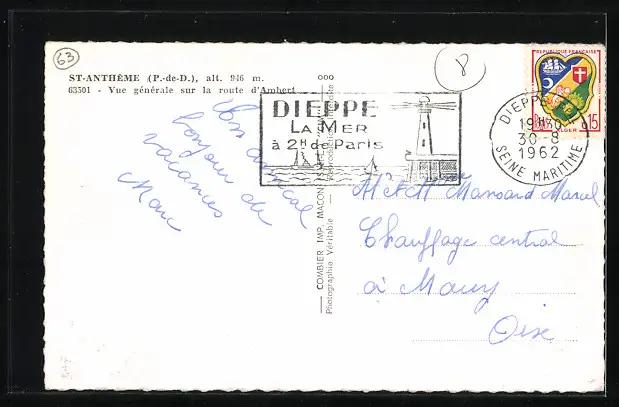 63
8
ST-ANTHÈME (P.-de-D.), alt. 946 m.
63501 - Vue générale sur la route d'Ambert
ooo
DIEPPE
LA MER
à 2H de Paris
REPUBLIQUE FRANÇAISE
ALGER 0,15
DIEPPE
19H30
30-8
1962
SEINE MARITIME
amical
bonjour de
vacances
Marc
COMBIER IMP. MACON
Photographie Véritable - Reproduction interdite
Mr et Mme Mansard Marcel
Chauffage central
à Mouy
Oise